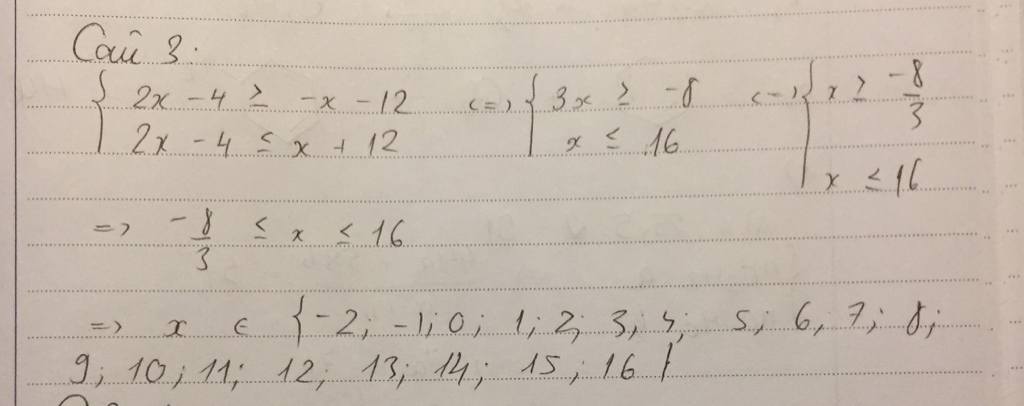 Câu 3:
{ 2x - 4 ≥ -x - 12 <=> { 3x ≥ -8 <=> { x ≥ -8/3
2x - 4 ≤ x + 12 x ≤ 16
x ≤ 16
=> -8/3 ≤ x ≤ 16
=> x ∈ {-2; -1; 0; 1; 2; 3; 4; 5; 6; 7; 8;
9; 10; 11; 12; 13; 14; 15; 16}